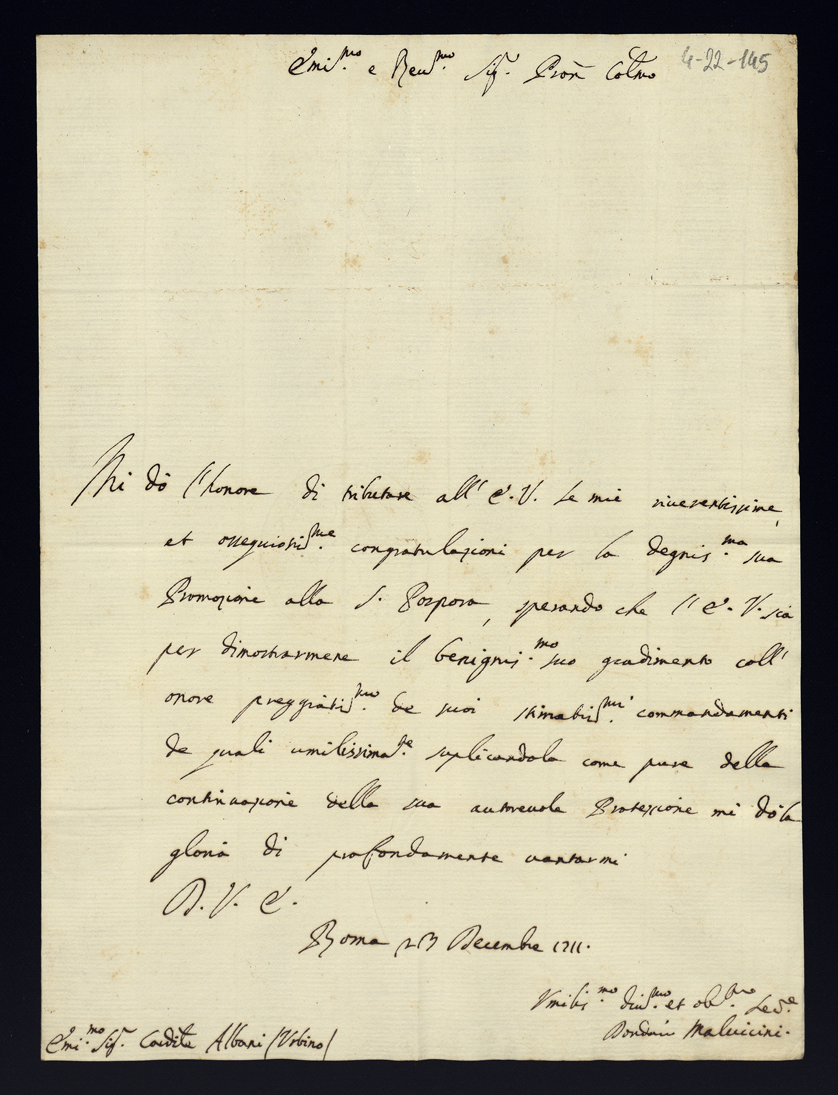 Emi.mo e Reu.mo Sig.r Pron Colmo 4-22-145
Mi dò l'honore di tributare all'E.V. le mie riuerentissime,
et ossequiosis.me congratulazioni per la degnis.ma sua
Promozione alla S. Porpora, sperando che l'E.V. sia
per dimostrarmene il benignis.mo suo gradimento coll'
onore preggiatis.mo de suoi stimatis.mi commandamenti
de quali umilissima.te suplicandola come pure della
continuazione della sua autreuole Protezzione mi dò la
gloria di profondamente vantarmi
D. V. E.
Roma 23 Decembre 1711.
Vmilis.mo diu.mo et ob.mo Se.e
Maluicini.
Emi.mo Sig.r Cardīle Albani (Vrbino)